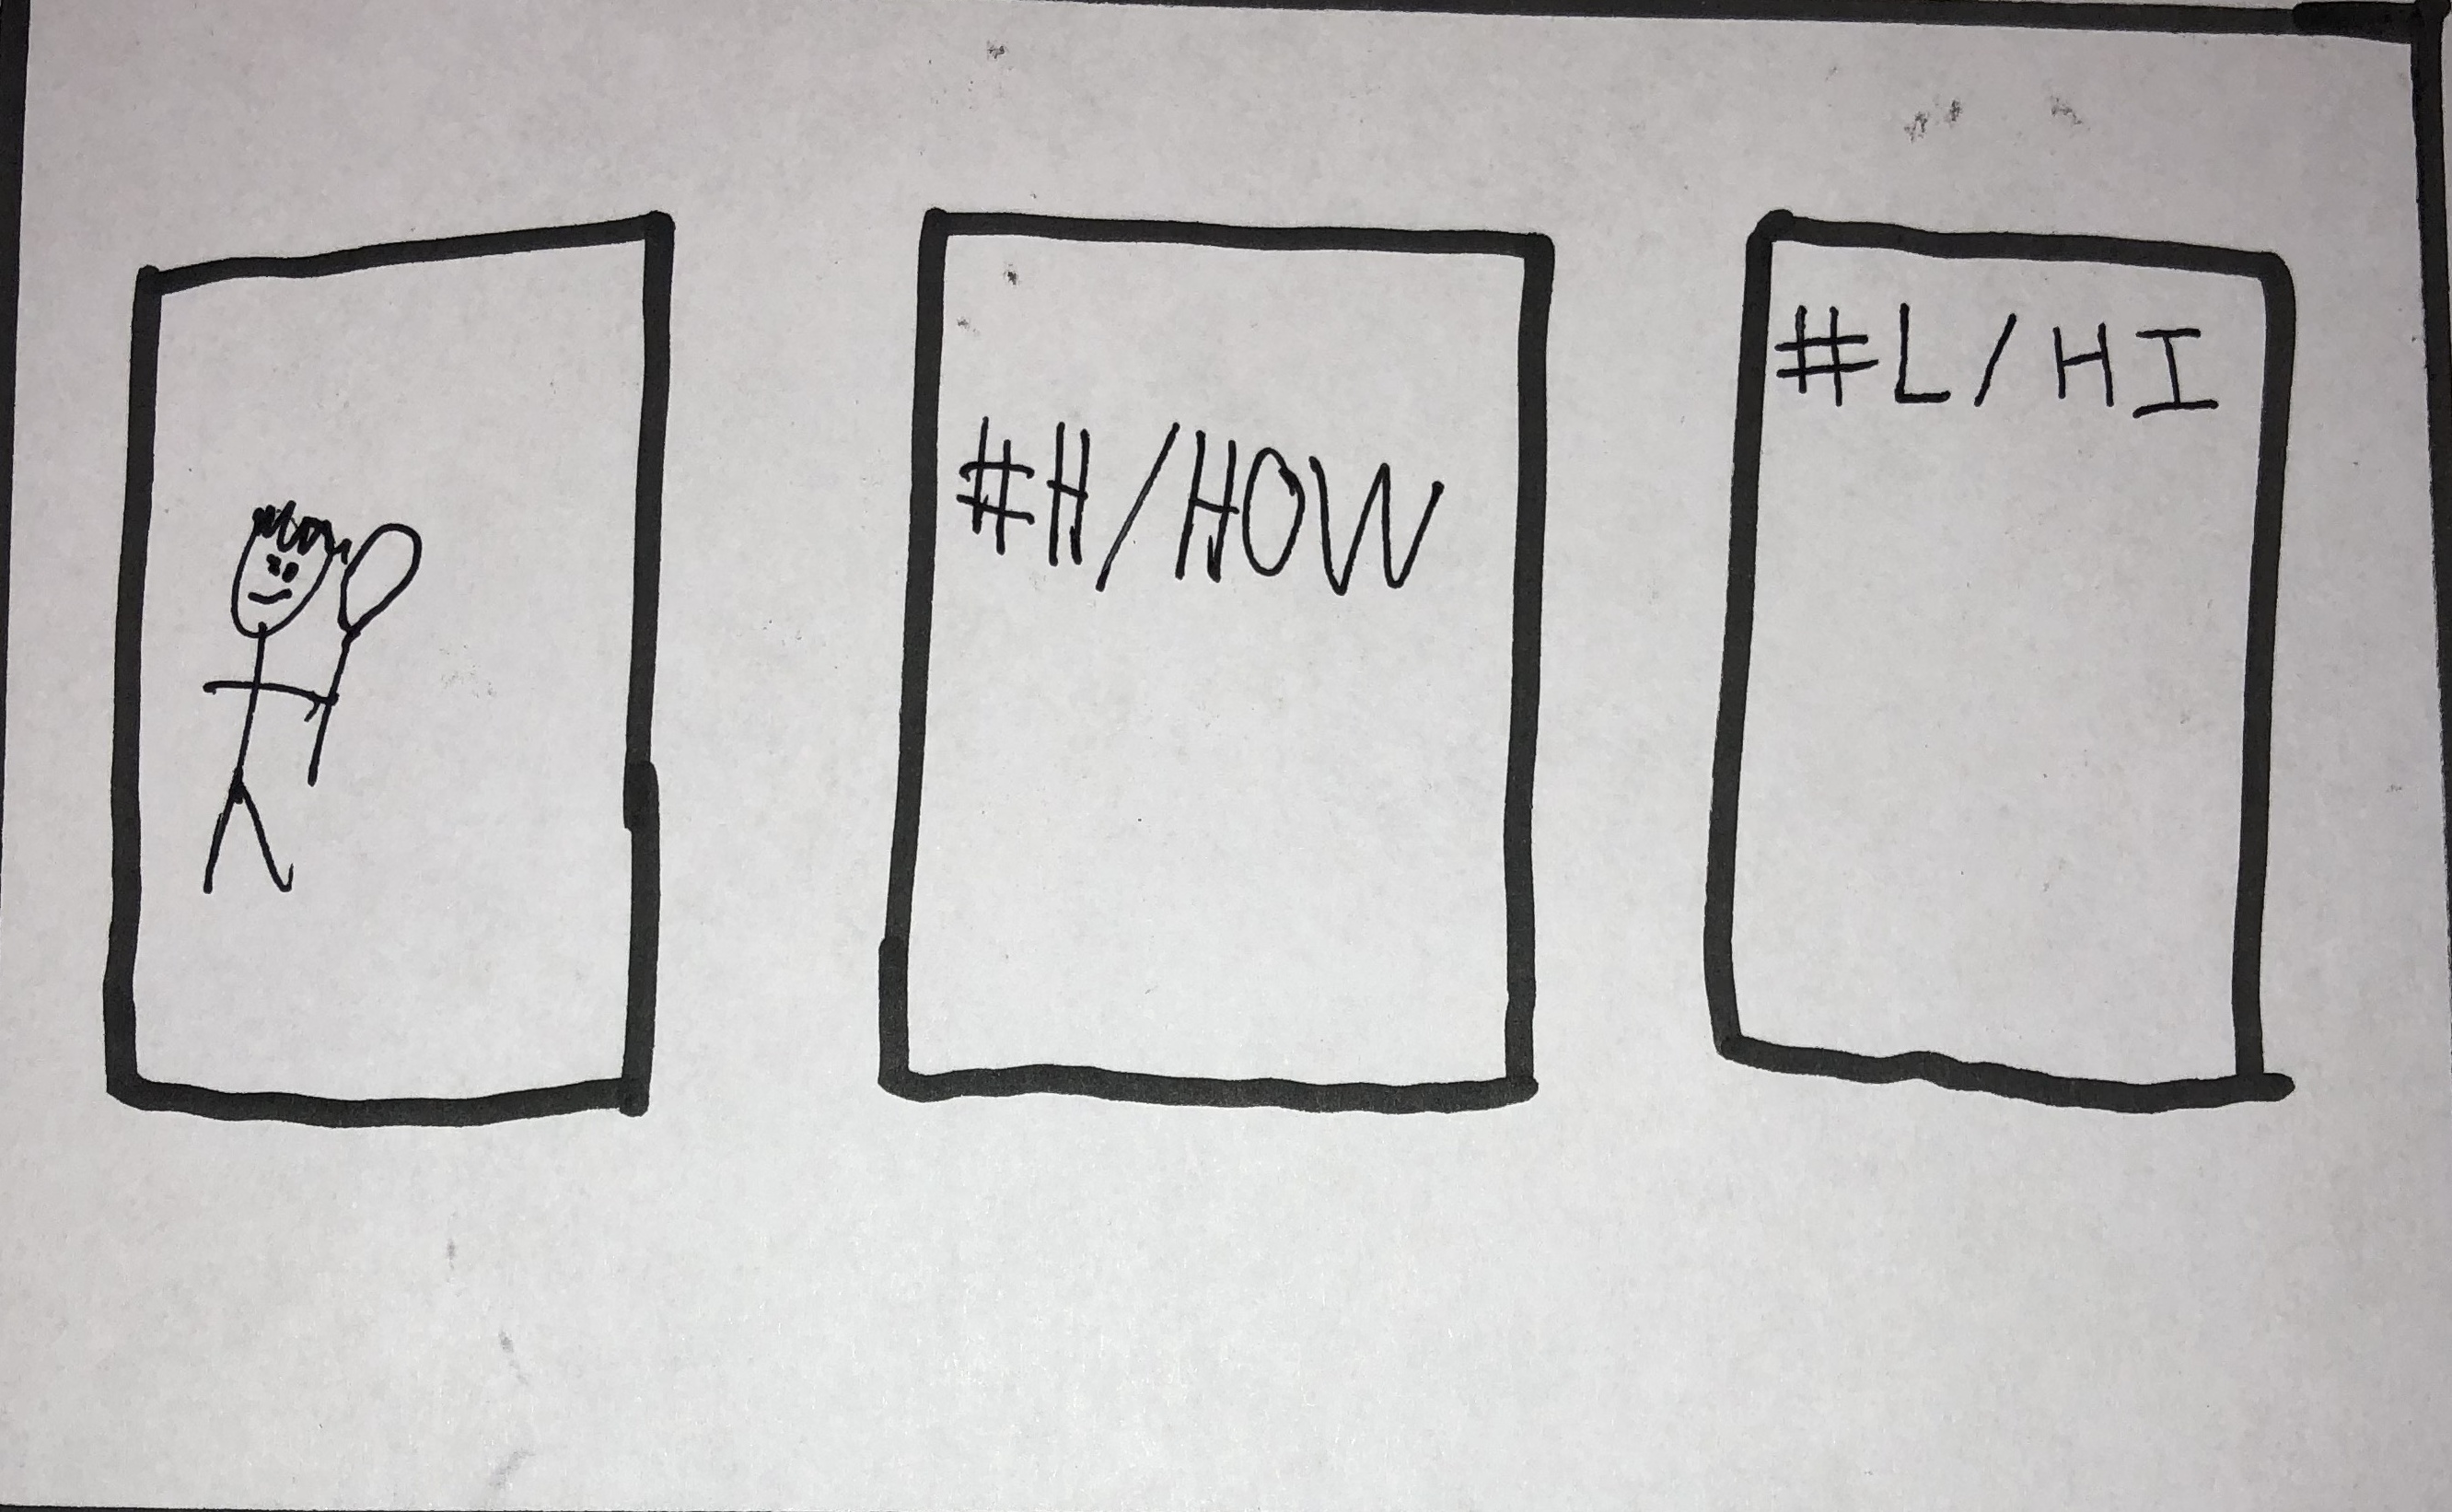 #H/HOW
#L/HI